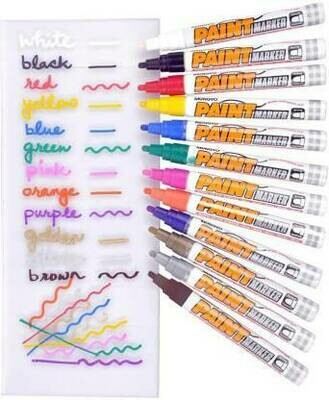 white
black
red
yellow
blue
green
pink
orange
purple
golden
silver
brown
PAINT MARKER
PAINT MARKER
PAINT MARKER
PAINT MARKER
PAINT MARKER
PAINT MARKER
PAINT MARKER
PAINT MARKER
PAINT MARKER
PAINT MARKER
PAINT MARKER
PAINT MARKER